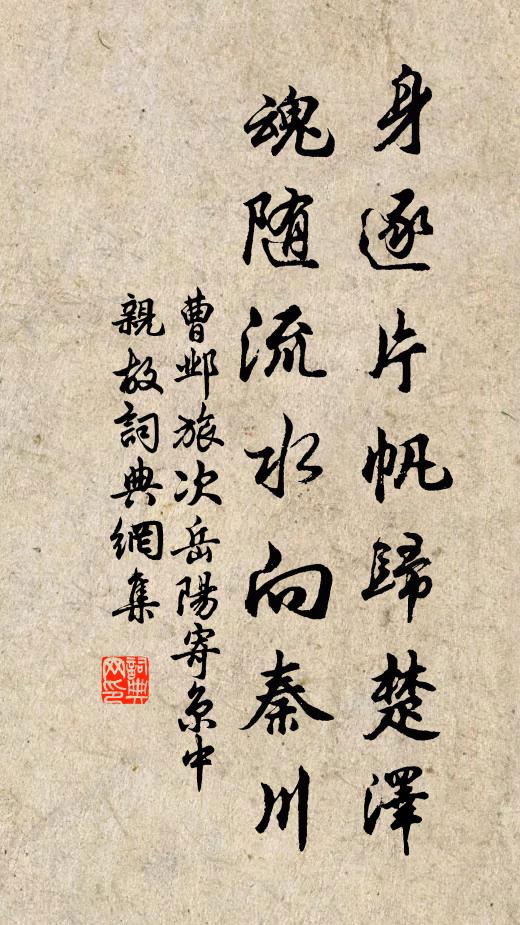 身逐片帆歸楚澤
魂随流水向秦川
曹邺旅次岳陽寄京中
親故詞典網集
詞典网印